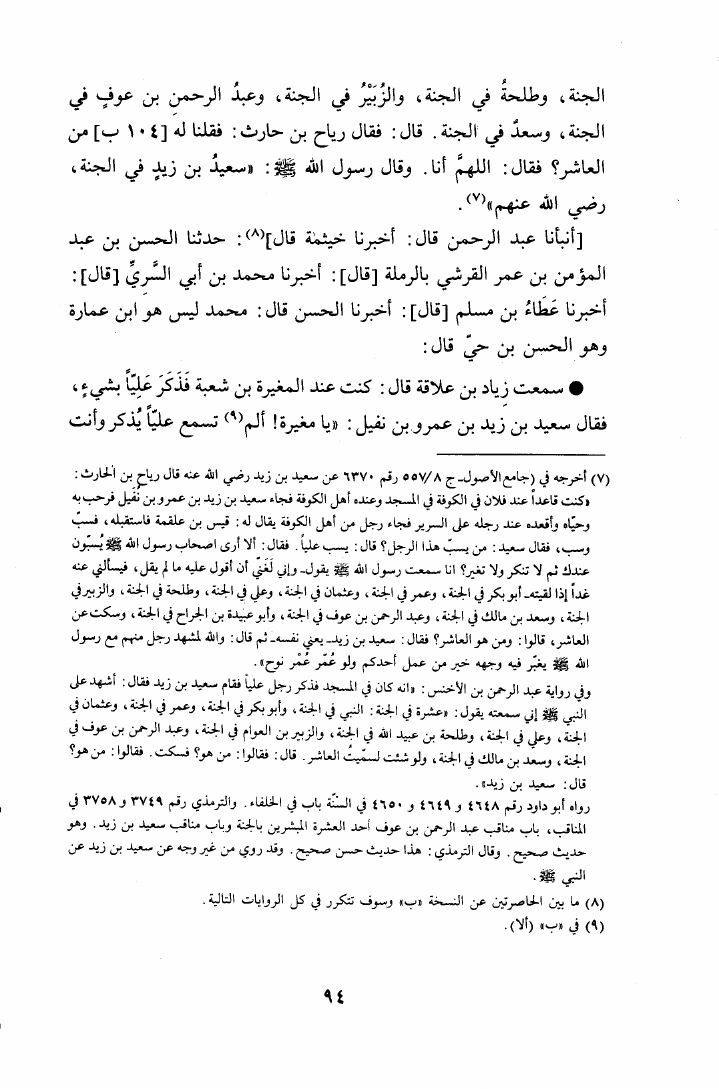 الجنة، وطلحةُ في الجنة، والزُبَيْرُ في الجنة، وعبدُ الرحمنِ بن عوفٍ في
الجنة، وسعدٌ في الجنة. قال: فقال رياح بن حارث: فقلنا له [١٠٤ ب] من
العاشر؟ فقال: اللهمَّ أنا. وقال رسول الله ﷺ: «سعيدُ بن زيدٍ في الجنة،
رضي الله عنهم»(٧).
[أنبأنا عبد الرحمن قال: أخبرنا خيثمة قال](٨): حدثنا الحسن بن عبد
المؤمن بن عمر القرشي بالرملة [قال]: أخبرنا محمد بن أبي السَّرِيِّ [قال]:
أخبرنا عَطَاءُ بن مسلم [قال]: أخبرنا الحسن قال: محمد ليس هو ابن عمارة
وهو الحسن بن حيّ قال:
● سمعت زِياد بن علاقة قال: كنت عند المغيرة بن شعبة فَذَكَرَ عَلِيّاً بشيءٍ،
فقال سعيد بن زيد بن عمرو بن نفيل: «يا مغيرة! ألم(٩) تسمع عليّاً يُذكر وأنت
(٧) أخرجه في (جامع الأصول ـ ج ٥٥٧/٨ رقم ٦٣٧٠ عن سعيد بن زيد رضي الله عنه قال رياح بن الحارث:
«كنت قاعداً عند فلان في الكوفة في المسجد وعنده أهل الكوفة فجاء سعيد بن زيد بن عمرو بن نُفَيل فرحب به
وحيّاه وأقعده عند رجله على السرير فجاء رجل من أهل الكوفة يقال له: قيس بن علقمة فاستقبله، فسبّ
وسب، فقال سعيد: من يسبّ هذا الرجل؟ قال: يسب علياً. فقال: ألا أرى اصحاب رسول الله ﷺ يُسبّون
عندك ثم لا تنكر ولا تغير؟ انا سمعت رسول الله ﷺ يقول ـ وإني لَغَنيّ أن أقول عليه ما لم يقل، فيسألني عنه
غداً إذا لقيته ـ أبو بكر في الجنة، وعمر في الجنة، وعثمان في الجنة، وعلي في الجنة، وطلحة في الجنة، والزبير في
الجنة، وسعد بن مالك في الجنة، وعبد الرحمن بن عوف في الجنة، وأبو عبيدة بن الجراح في الجنة، وسكت عن
العاشر، قالوا: ومن هو العاشر؟ فقال: سعيد بن زيد ـ يعني نفسه ـ ثم قال: والله لمشهد رجل منهم مع رسول
الله ﷺ يغبّر فيه وجهه خير من عمل أحدكم ولو عُمّر عُمْر نوح».
وفي رواية عبد الرحمن بن الأخنس: «انه كان في المسجد فذكر رجل علياً فقام سعيد بن زيد فقال: أشهد على
النبي ﷺ إني سمعته يقول: «عشرة في الجنة: النبي في الجنة، وأبو بكر في الجنة، وعمر في الجنة، وعثمان في
الجنة، وعلي في الجنة، وطلحة بن عبيد الله في الجنة، والزبير بن العوام في الجنة، وعبد الرحمن بن عوف في
الجنة، وسعد بن مالك في الجنة، ولو شئت لسمّيتُ العاشر. قال: فقالوا: من هو؟ فسكت. فقالوا: من هو؟
قال: سعيد بن زيد».
رواه أبو داود رقم ٤٦٤٨ و ٤٦٤٩ و ٤٦٥٠ في السنّة باب في الخلفاء. والترمذي رقم ٣٧٤٩ و ٣٧٥٨ في
المناقب، باب مناقب عبد الرحمن بن عوف أحد العشرة المبشرين بالجنة وباب مناقب سعيد بن زيد. وهو
حديث صحيح. وقال الترمذي: هذا حديث حسن صحيح. وقد روي من غير وجه عن سعيد بن زيد عن
النبي ﷺ.
(٨) ما بين الحاصرتين عن النسخة «ب» وسوف تتكرر في كل الروايات التالية.
(٩) في «ب» (ألا).
٩٤